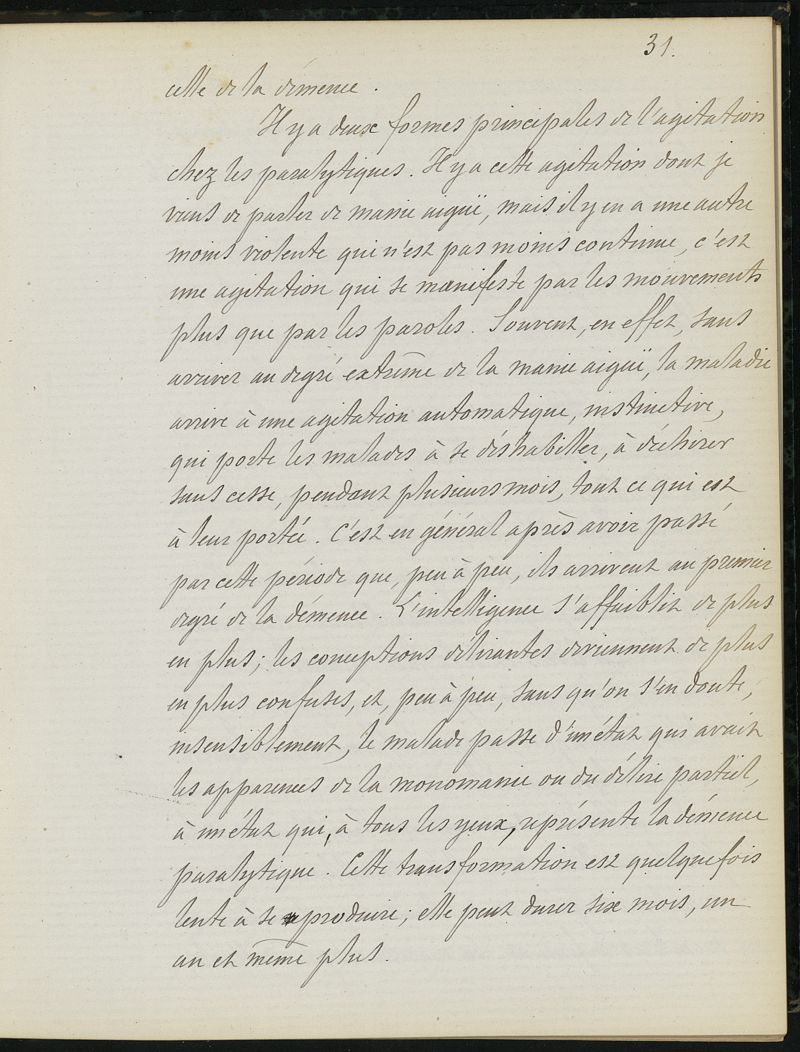 31.
celle de la démence.
Il y a deux formes principales de l'agitation
chez les paralytiques. Il y a cette agitation dont je
viens de parler de manie aiguë, mais il y en a une autre
moins violente qui n'est pas moins continue, c'est
une agitation qui se manifeste par les mouvements
plus que par les paroles. Souvent, en effet, sans
arriver au degré extrême de la manie aiguë, la maladie
arrive à une agitation automatique, instinctive,
qui porte les malades à se déshabiller, à déchirer
sans cesse, pendant plusieurs mois, tout ce qui est
à leur portée. C'est en général après avoir passé
par cette période que, peu à peu, ils arrivent au premier
degré de la démence. L'intelligence s'affaiblit de plus
en plus; les conceptions délirantes deviennent de plus
en plus confuses, et, peu à peu, sans qu'on s'en doute,
insensiblement, le malade passe d'un état qui avait
les apparences de la monomanie ou du délire partiel,
à un état qui, à tous les yeux, représente la démence
paralytique. Cette transformation est quelquefois
lente à se produire; elle peut durer six mois, un
an et même plus.